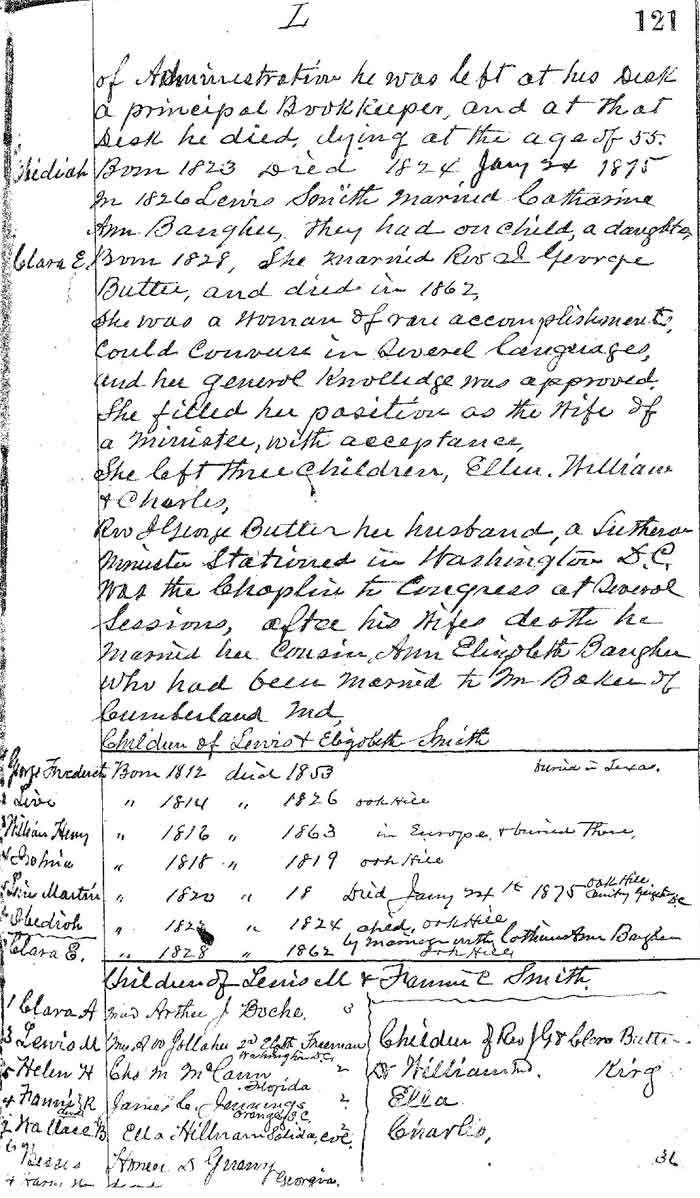 L
121
of Administration he was left at his Desk
a principal Bookkeeper, and at that
Desk he died, dying at the age of 55.
Obidiah Born 1823 Died 1824 Jany 24 1875
In 1826 Lewis Smith married Catharine
Ann Baugher, They had on child, a daughter,
Clara E. Born 1828, She married Rev J George
Butler, and died in 1862,
She was a Woman of rare accomplishments,
Could Converse in Severel languages,
and her general Knolledge was approved.
She filled her position as the Wife of
a Minister, with acceptance,
She left three Children, Ellen. William
& Charles,
Rev J George Butler her husband, a Lutheran
Minister Stationed in Washington D.C.
Was the Chaplin to Congress at Several
Sessions, after his Wifes death he
Married her Cousin, Ann Elizabeth Baugher
Who had been Married to Mr Baker of
Cumberland Md,
Children of Lewis & Elizabeth Smith
George Frederick Born 1812 died 1853 buried in Texas.
2 Levi " 1814 " 1826 oak Hill
3 William Henry " 1816 " 1863 in Europe & buried There,
4 " 1818 " 1819 oak Hill
5 Martin " 1820 " 18 Died Jany 24th 1875 oak Hill
6 Obediah " 1823 " 1824 child, oak Hill
by marriage with Catharine Ann Baugher
Clara E. " 1828 " 1862 oak Hill
Children of Lewis M & Fannie C Smith
1 Clara A mar Arthur J Boche. 3
3 Lewis M 2nd Freeman
Washington D.C.
Children of Rev J G & Clara Butler
5 Helen H Chs M McCann 2
Florida
Dr William King
4 Fannie R James C. Jennings 2
dead Orange S C.
Ella
2 Wallace B Ella Hillman Salida, Col. 2
Charles,
6 Bessie Homer D
Georgia.
36